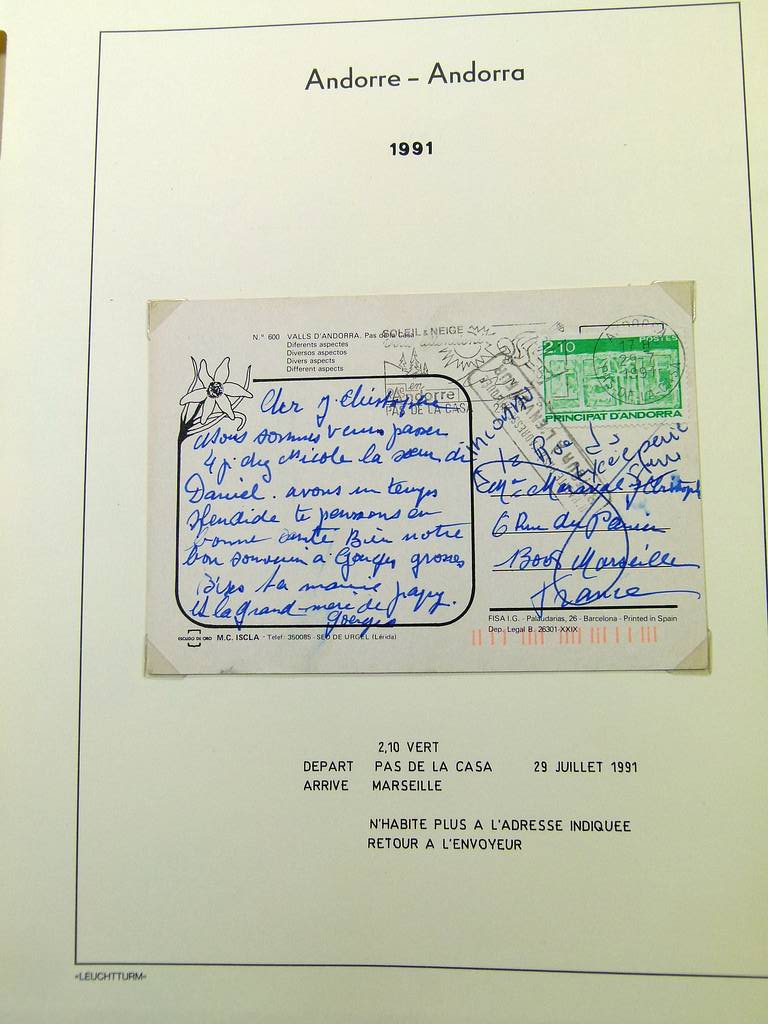 Andorre – Andorra
1991
N.° 600 VALLS D'ANDORRA. Pas de la Casa
Diferents aspectes
Diversos aspectos
Divers aspects
Different aspects
SOLEIL & NEIGE
en
Andorre
PAS DE LA CASA
2.10 POSTES
PRINCIPAT D'ANDORRA
17 H
29-7
1991
inconnu
Cher J. Christophe
Nous sommes venus passer
4 j. chez Nicole la sœur de
Daniel. avons un temps
splendide te pensons en
bonne santé Bien notre
bon souvenir a Georges grosses
Bises ta mamie papy.
et la grand-mère de
Georges
6 Rue du
Marseille
France
FISA I.G. - Palaudarias, 26 - Barcelona - Printed in Spain
Dep. Legal B. 26301-XXIX
ESCUDO DE ORO M.C. ISCLA - Telef: 350085 - SEO DE URGEL (Lérida)
2,10 VERT
DEPART PAS DE LA CASA 29 JUILLET 1991
ARRIVE MARSEILLE
N'HABITE PLUS A L'ADRESSE INDIQUEE
RETOUR A L'ENVOYEUR
»LEUCHTTURM«